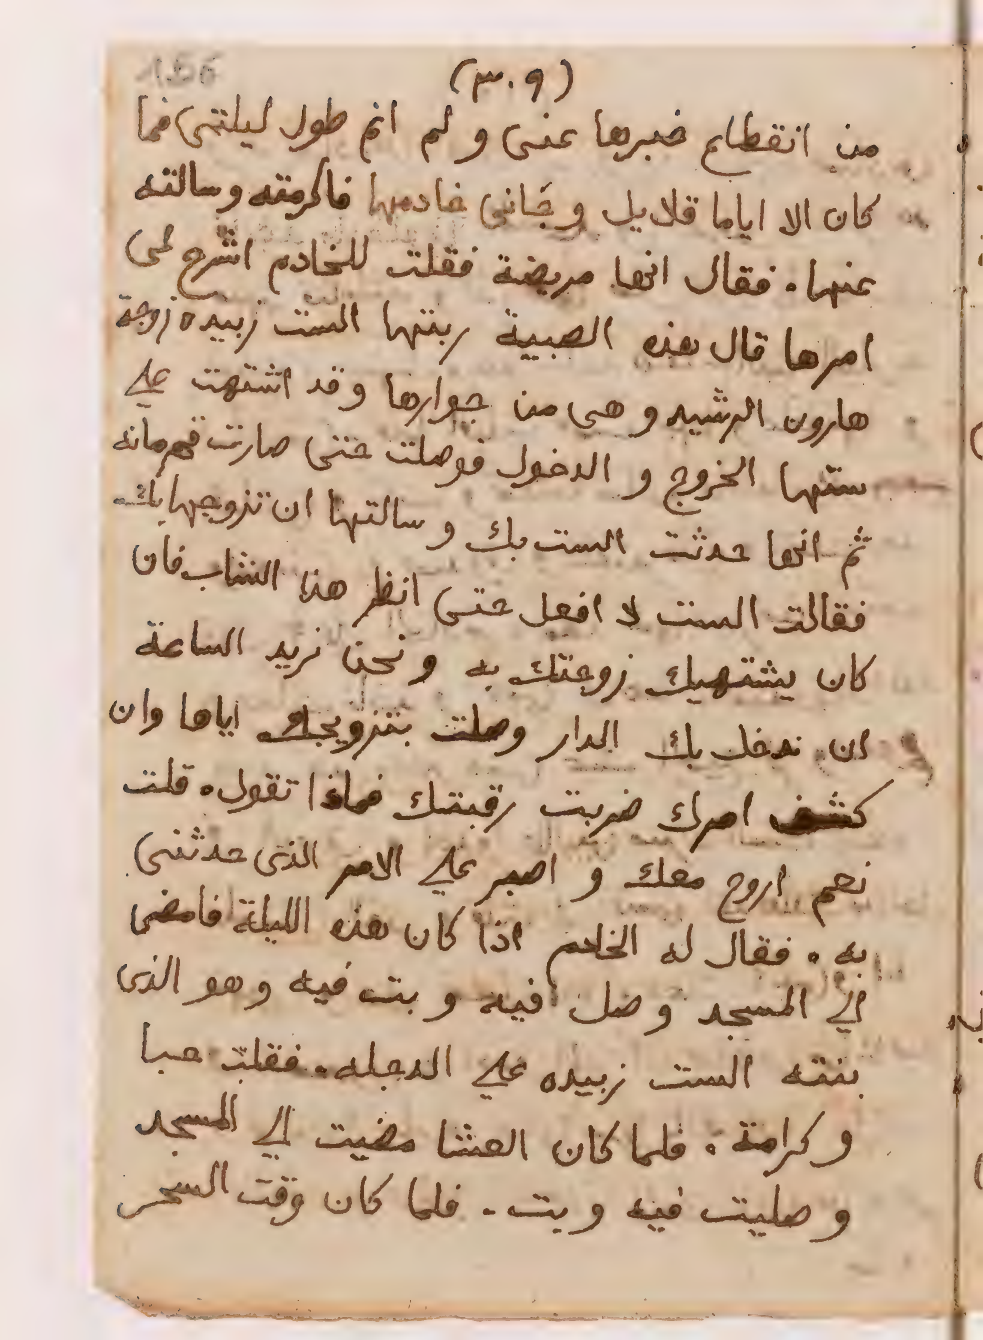 156
(٣٠٩)
من انقطاع خبرها عنى و لم انم طول ليلتى فما
كان الا اياما قلايل وجانى خادمها فاكرمته وسالته
عنها . فقال انها مريضة فقلت للخادم اشرح لى
امرها قال هذه الصبية ربتها الست زبيده زوجة
هارون الرشيد و هى من جوارها و قد اشتهت على
ستها الخروج و الدخول فوصلت حتى صارت قهرمانه
ثم انها حدثت الست بك و سالتها ان تزوجها بك
فقالت الست لا افعل حتى انظر هذا الشاب فان
كان يشتهيك زوجتك به و نحن نريد الساعة
ان ندخل بك الدار وصلت بتزويجك اياها وان
كشف امرك ضربت رقبتك فماذا تقول . قلت
نعم اروح معك و اصبر على الامر الذى حدثنى
به . فقال له الخادم اذا كان هذه الليلة فامضى
الى المسجد و صل فيه و بت فيه و هو الذى
بنته الست زبيده على الدجله . فقلت حبا
و كرامة . فلما كان العشا مضيت الى المسجد
و صليت فيه و بت . فلما كان وقت السحر